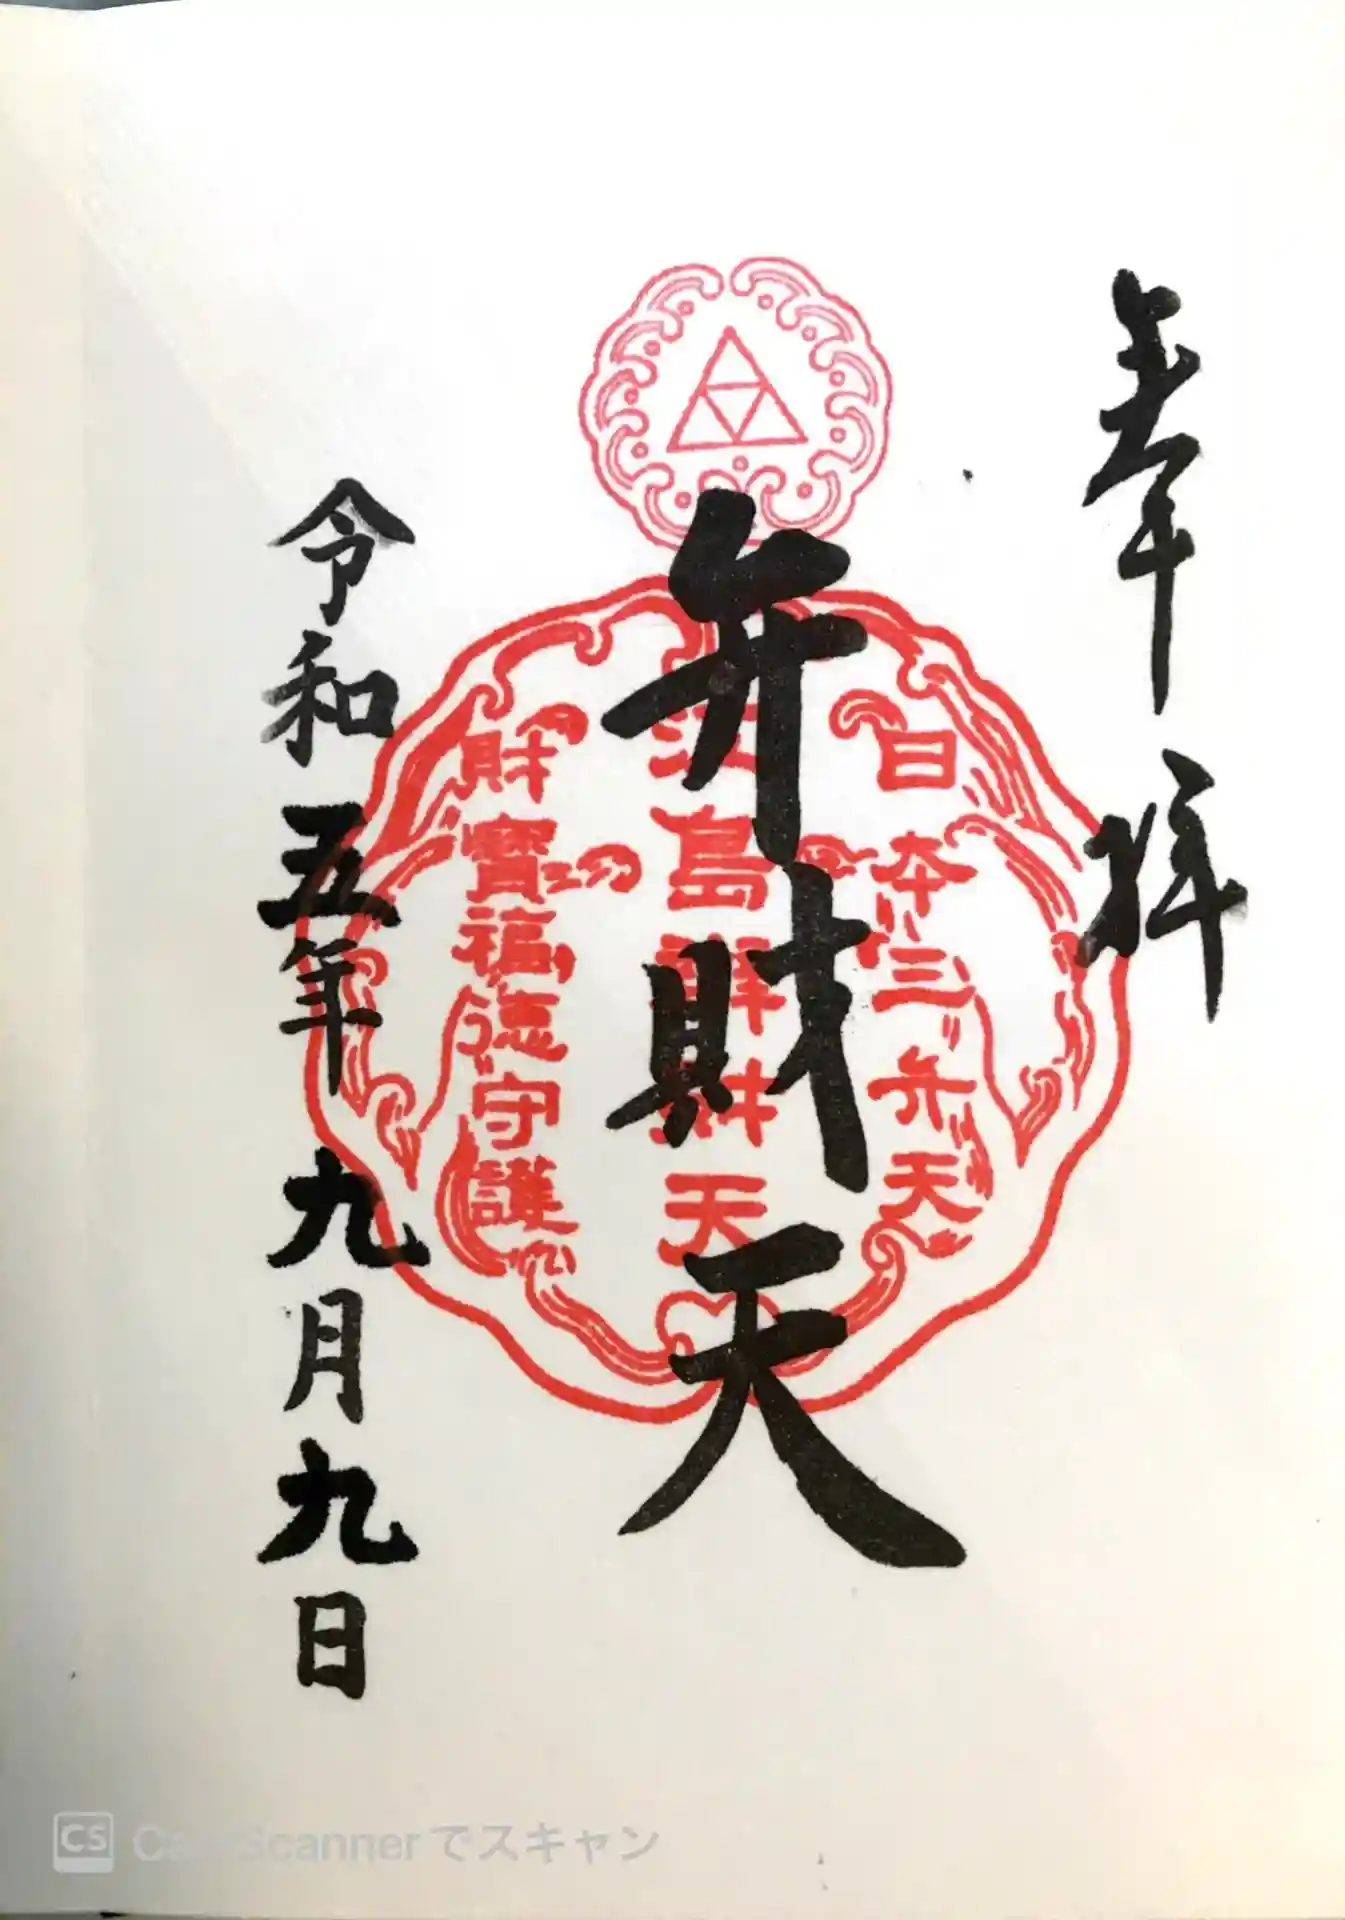 奉拝
日本三弁天
江島弁財天
弁財天
財寶福徳守護
令和五年 九月九日
CS CamScannerでスキャン